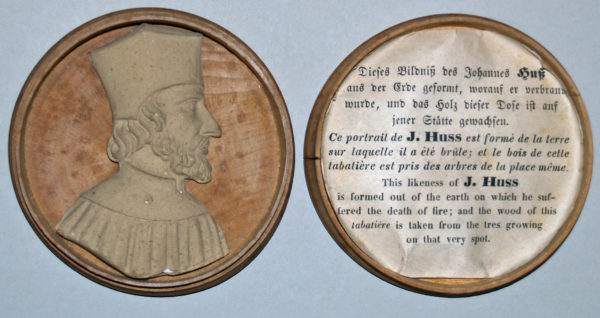 Dieses Bildniß des Johannes Huß
aus der Erde geformt, worauf er verbrann
wurde, und das Holz dieser Dose ist auf
jener Stätte gewachsen.
Ce portrait de J. Huss est formé de la terre
sur laquelle il a été brûle; et le bois de cette
tabatière est pris des arbres de la place même.
This likeness of J. Huss
is formed out of the earth on which he suf-
fered the death of fire; and the wood of this
tabatière is taken from the tres growing
on that very spot.